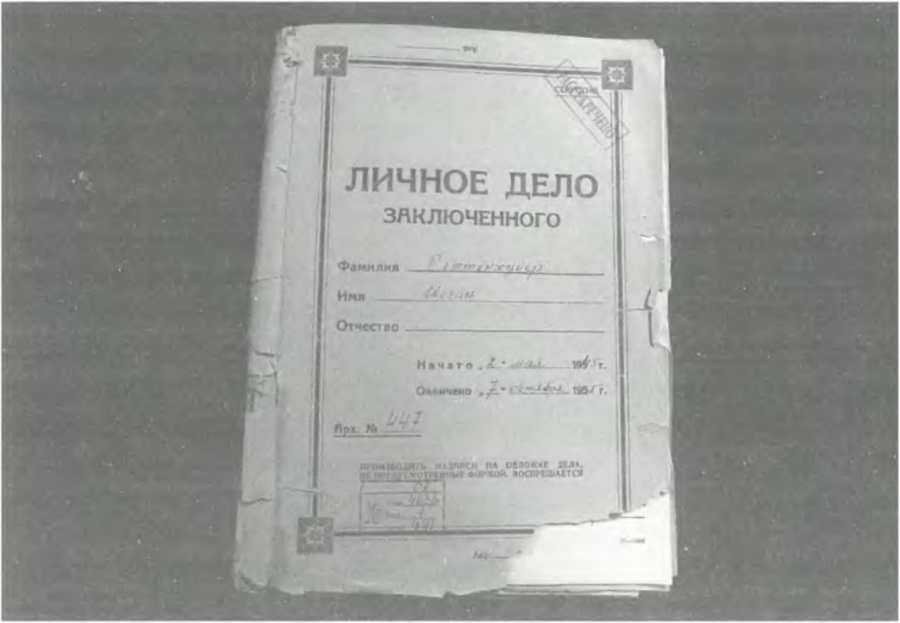 СЕКРЕТНО
РАССЕКРЕЧЕНО
ЛИЧНОЕ ДЕЛО
ЗАКЛЮЧЕННОГО
Фамилия Раттенхубер
Имя Иоган
Отчество
Начато „2“ мая 1945 г.
Окончено „7“ октября 1955 г.
Арх. № 447
ПРОИЗВОДИТЬ НАДПИСИ НА ОБЛОЖКЕ ДЕЛА,
НЕ ПРЕДУСМОТРЕННЫЕ ФОРМОЙ, ВОСПРЕЩАЕТСЯ